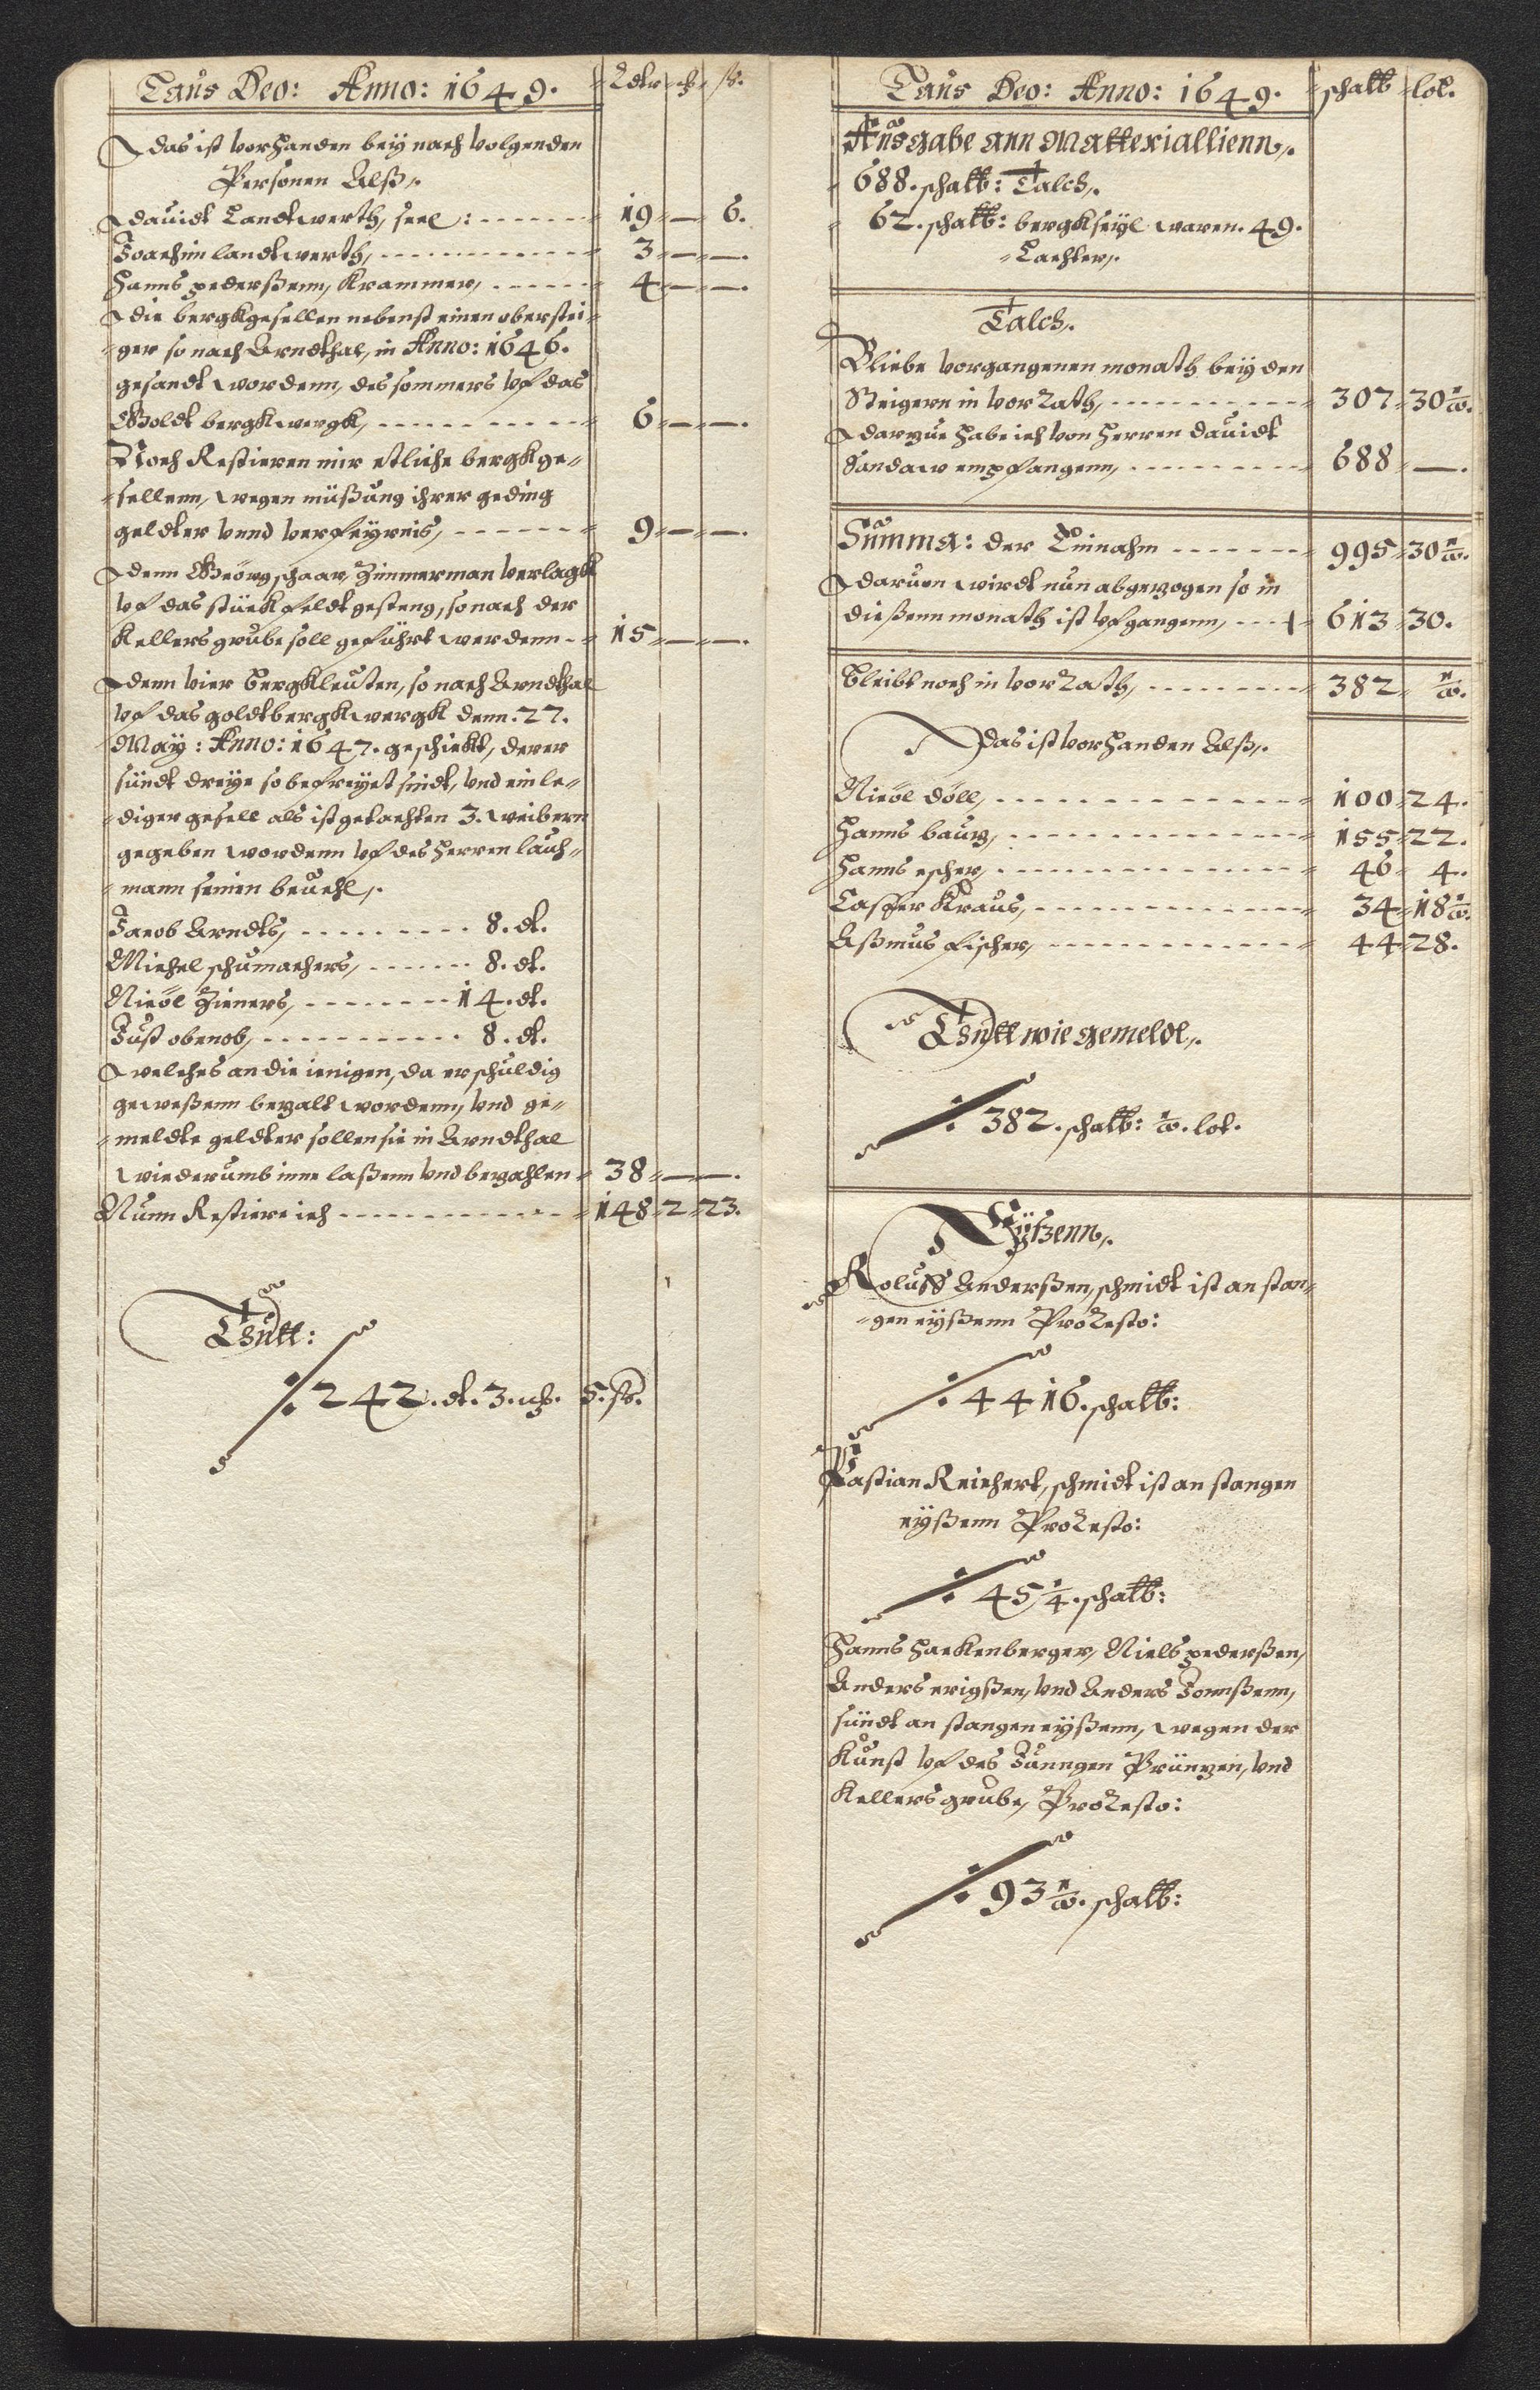 Laus Deo: Anno: 1649.
das ist vorhanden bey nach volgenden
Personen Alß,.
dauidt Landtwerth, seel: 19 — 6.
Joachim landtwerth, 3 — —.
Hanns pederßenn, Krammer, 4 — —.
die bergkgesellen nebenst einen oberstei=
=ger so nach Arndthal, in Anno: 1646.
gesandt wordenn, des sommers vf das
Goldt bergkwergk, 6 — —.
Noch Restieren mir etliche bergkge=
=sellenn, wegen müßung ihrer geding
geldter vnnd verfeyrnis, 9 — —.
denn Geörg schaar, Zimmerman verlagk
vf das stück feldtgesteng, so nach der
Kellers grube soll geführt werdenn 15 — —.
denn vier bergkleuten, so nach Arndthal
vf das goldtbergkwergk denn. 27.
Maÿ: Anno: 1647. geschickt, derer
sündt dreye so befreyet sindt, vnd ein le=
=diger gesell als ist gedachten 3. weibern
gegeben wordenn vf des Herren lauch=
=mann seinen beuehl,.
Jacob Arndts, 8. dt.
Michel schumachers, 8. dt.
Nicöl Zieners, 14. dt.
Just obenob, 8. dt.
welches an die ienigen, da er schuldig
geweßenn bezalt wordenn, vnd ge=
=meldte geldter sollen sie in Arndthal
wiederumb inne laßenn vnd bezahlen 38 — —.
Nunn Restiere ich 148 2 23.
Thutt:
242. dt. 3. 5. ß.
Laus Deo: Anno: 1649. schalb lot.
Ausgabe ann Matteriallienn,.
688. schalb: Talch,.
62. schalb: bergkseyl waren. 49.
Lachter,.
Talch,.
Bliebe vorgangenen monath bey den
Steigern in vorRath, 307 30 1/2.
darzue habe ich von Herren dauidt
Sandaw empfangenn, 688 —.
Summa: der Einnahm 995 30 1/2.
daruon wirdt nun abgezogen so in
dießenn monath ist vfgangenn, 613 30.
bleibt noch in vorRath, 382 1/2.
das ist vorhanden Alß,.
Nicöl döll, 100 24.
Hanns bauz, 155 22.
Hanns escher, 46 4.
Casper Kraus, 34 18 1/2.
Aßmus fischer, 44 28.
Thutt wie gemeldt,.
382. schalb: 1/2. lot.
Eÿßenn,.
Roluff Anderßen, schmidt ist an stan=
=gen eyßenn ProResto:
4416. schalb:
Bastian Reichert, schmidt ist an stangen
eyßenn ProResto:
45 1/4. schalb:
Hanns Hackenberger, Niels pederßen,
Anders erigßen, vnd Anders Jonnßenn,
sündt an stangen eyßenn, wegen der
Kunst vf des Junngen Prünzen, vnd
Kellers grube, ProResto:
93 1/2. schalb: